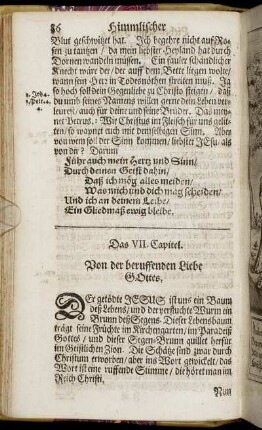 86 Himmlischer
Blut geschwitzet hat. Ich begehre nicht auf Ro-
sen zu tantzen / da mein liebster Heyland hat durch
Dornen wandeln müssen. Ein fauler schändlicher
Knecht wäre der / der auf dem Bette liegen wolte /
wann sein Herr in Todesnöthen streiten muß. Ja
so hoch soll dein Gegenliebe zu Christo steigen / daß
du umb seines Namens willen gerne dein Leben ver-
lierest / auch für deine und seine Brüder. Das mei-
net Petrus: Wie Christus im Fleisch für uns gelit-
ten / so wapnet euch mit demselbigen Sinn. Aber
von wem soll der Sinn kommen / liebster JEsu / als
von dir? Darum
1. Joh. 4.
1. Petr. 4.
4.
Führe auch mein Hertz und Sinn /
Durch deinen Geist dahin /
Daß ich mög alles meiden /
Was mich und dich mag scheiden /
Und ich an deinem Leibe /
Ein Gliedmaß ewig bleibe.
Das VII. Capitel.
Von der beruffenden Liebe
GOttes.
Der getödte JESUS ist uns ein Baum
deß Lebens / und der verfluchte Wurm ein
Brunn deß Segens. Dieser Lebensbaum
trägt seine Früchte im Kirchengarten / im Paradeiß
Gottes / und dieser Segen-Brunn quillet herfür
im Geistlichen Zion. Die Schätze sind zwar durch
Christum erworben / aber ins Wort gewickelt / das
Wort ist eine ruffende Stimme / die höret man im
Reich Christi.
Nun